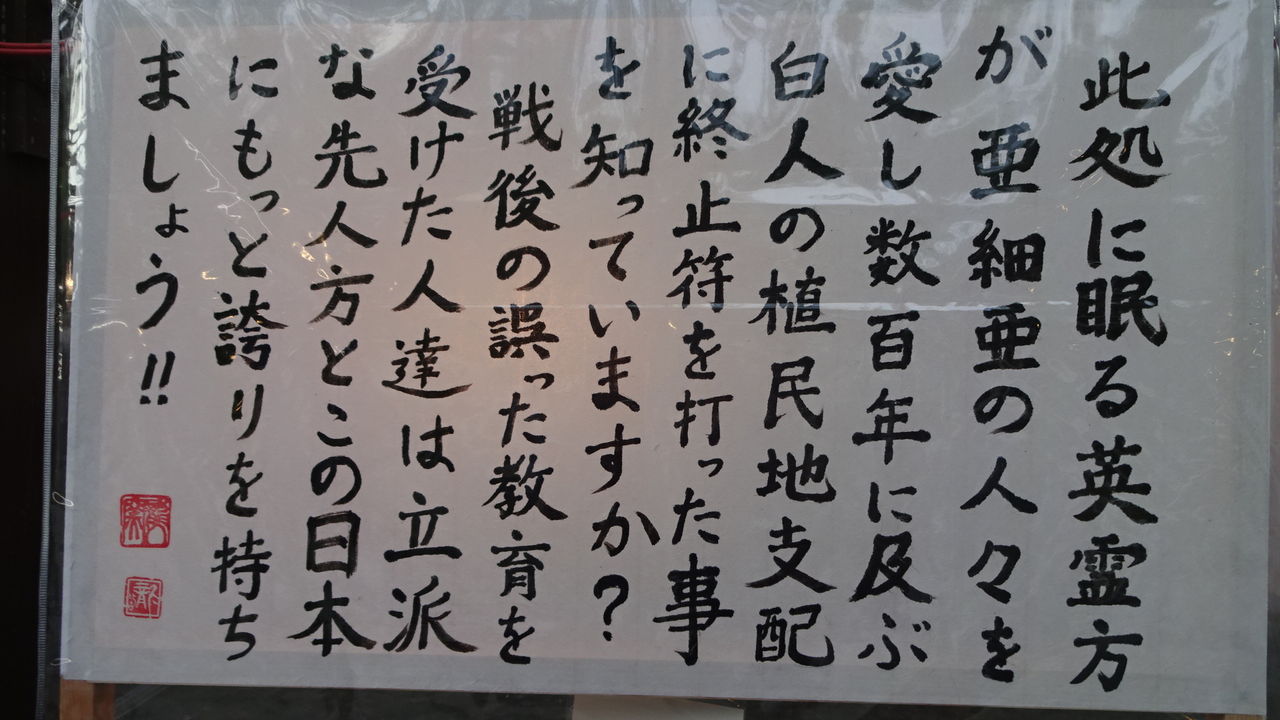 此処に眠る英霊方
が亜細亜の人々を
愛し数百年に及ぶ
白人の植民地支配
に終止符を打った事
を知っていますか?
戦後の誤った教育を
受けた人達は立派
な先人方とこの日本
にもっと誇りを持ち
ましょう!!